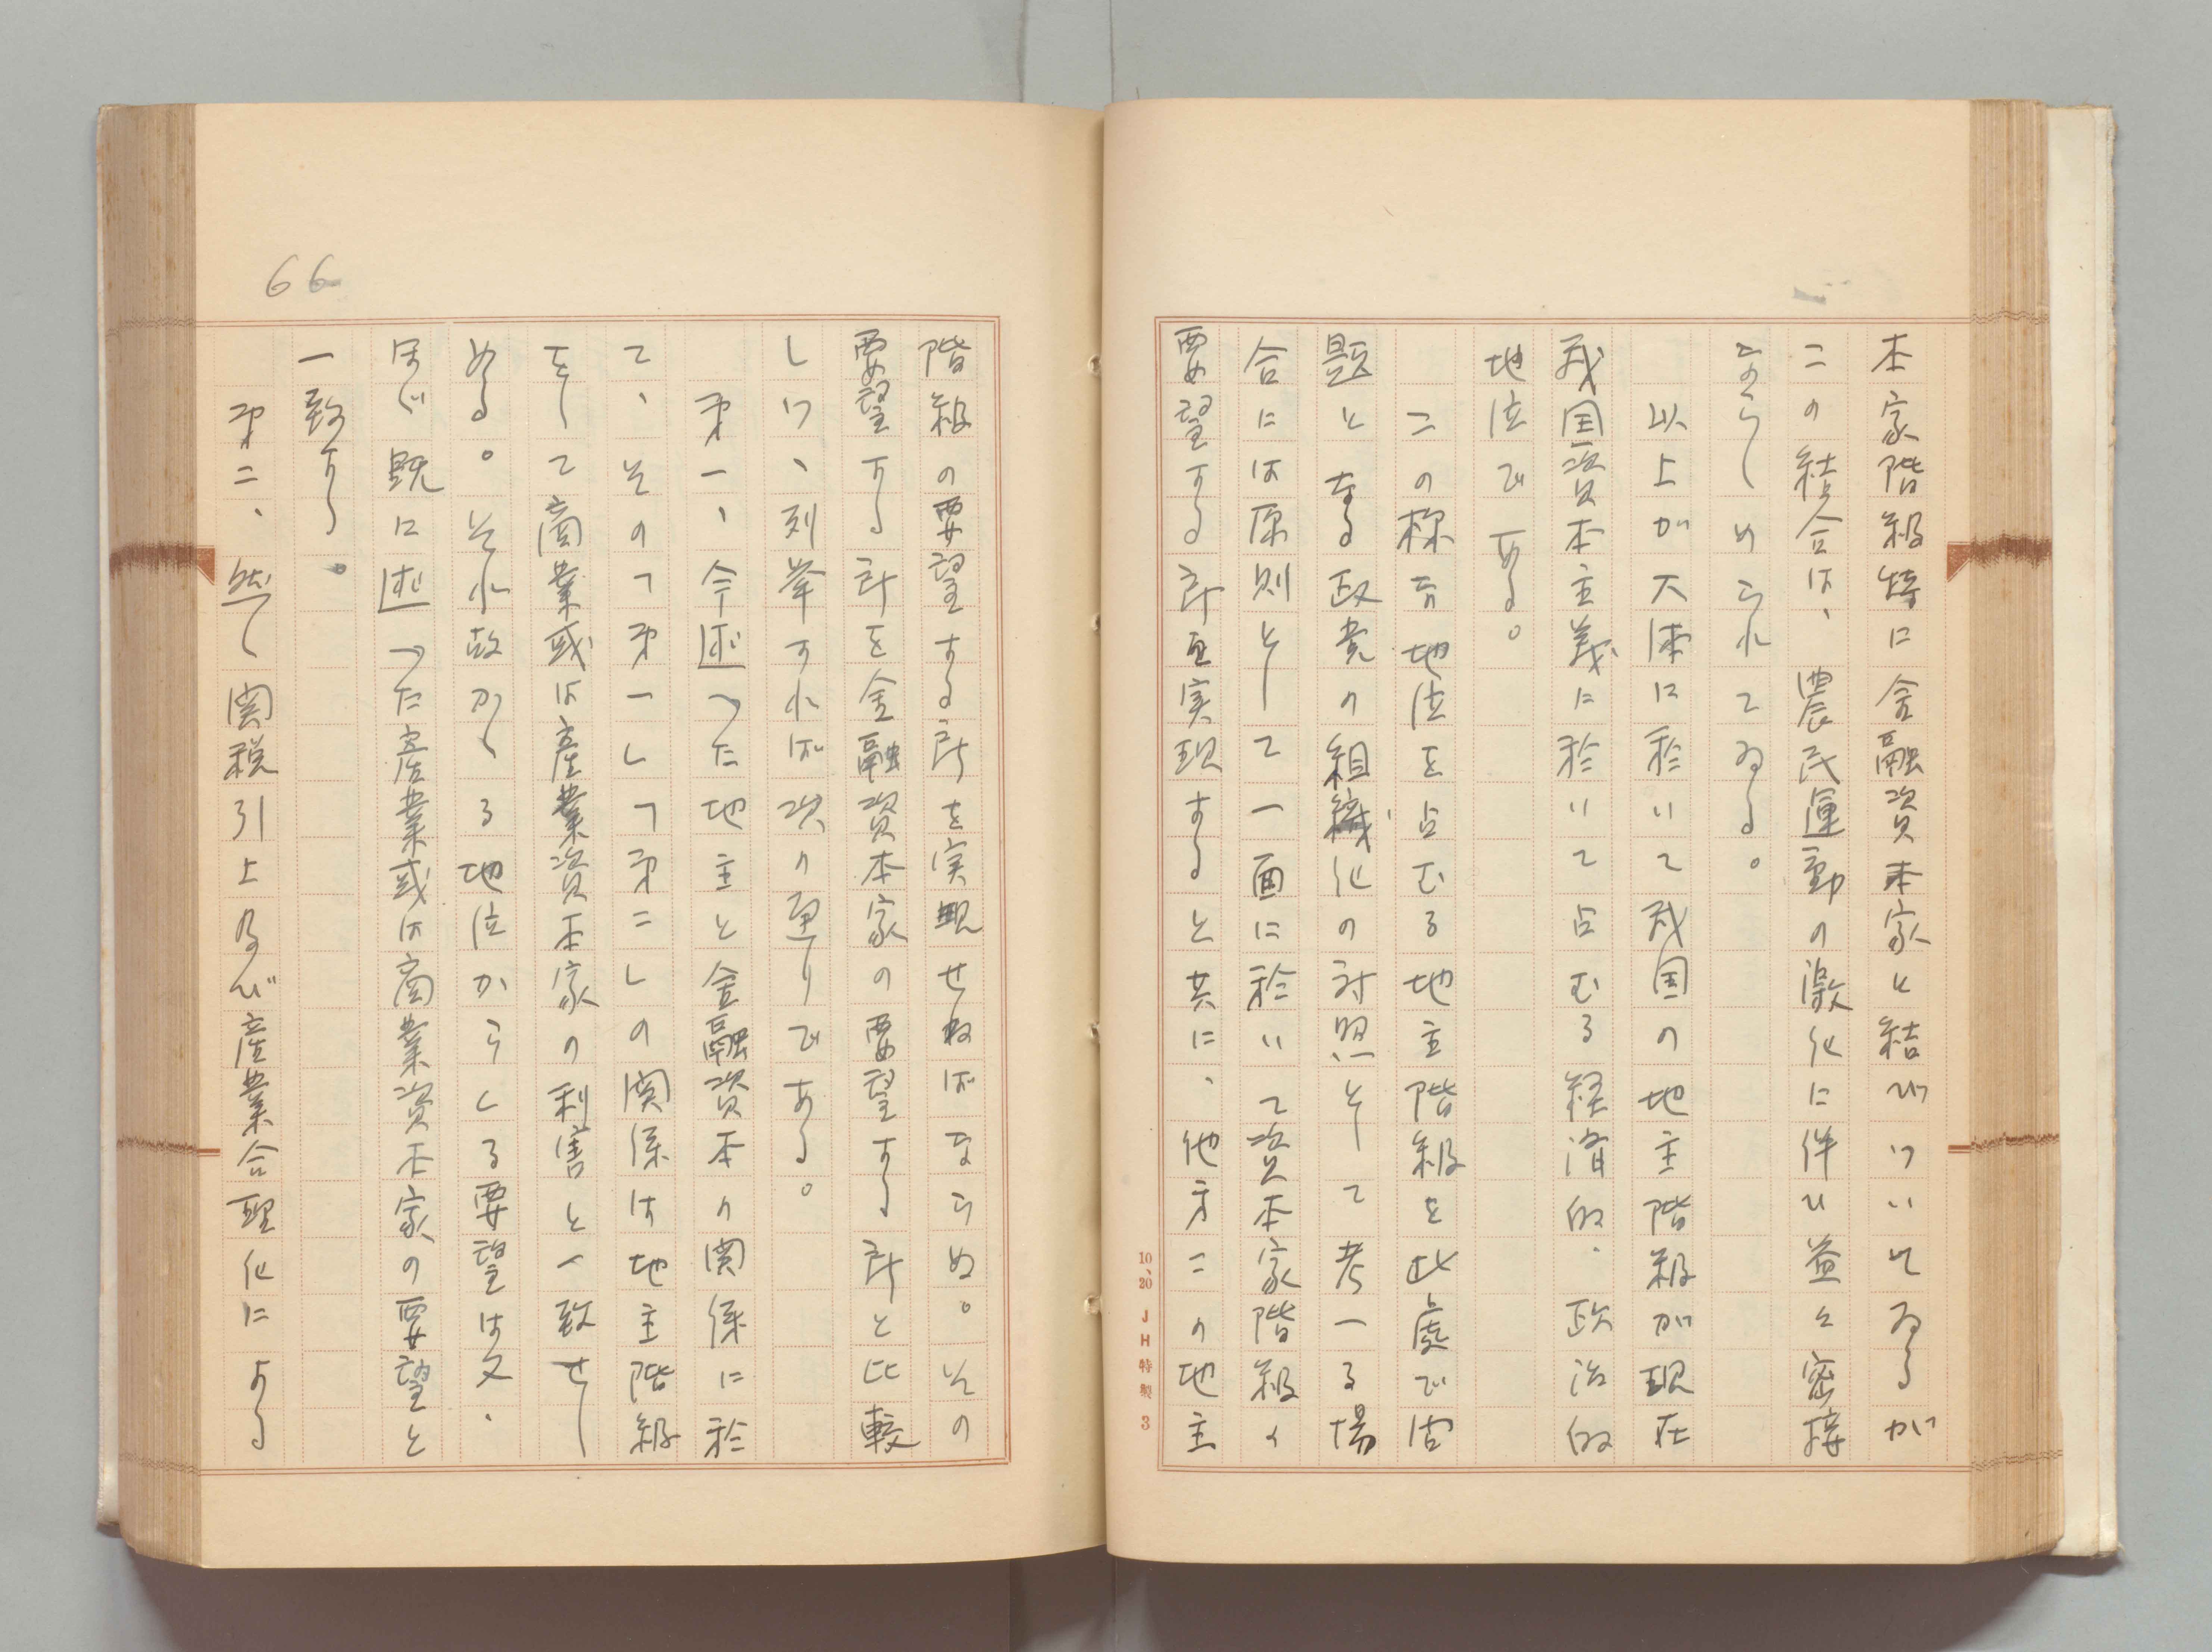 本家階級特に金融資本家と結びついてゐるが
この結合は、農民運動の激化に伴ひ益々密接
ならしめられてゐる。
以上が大体に於いて我国の地主階級が現在
我国資本主義に於いて占むる経済的、政治的
地位である。
この様な地位を占むる地主階級を此處で問
題となる政党の組織化の対照として考へる場
合には原則として一面に於いて資本家階級の
要望する所を実現すると共に、他方この地主
10、20 JH特製 3
66
階級の要望する所を実現せねばならぬ。その
要望する所を金融資本家の要望する所と比較
しつつ、列挙すれば次の通りである。
第一、今述べた地主と金融資本の関係に於
て、その「第一」「第二」の関係は地主階級
をして商業或は産業資本家の利害と一致せし
める。それ故かゝる地位からくる要望は又、
ほゞ既に述べた産業或は商業資本家の要望と
一致する。
第二、然し関税引上及び産業合理化による